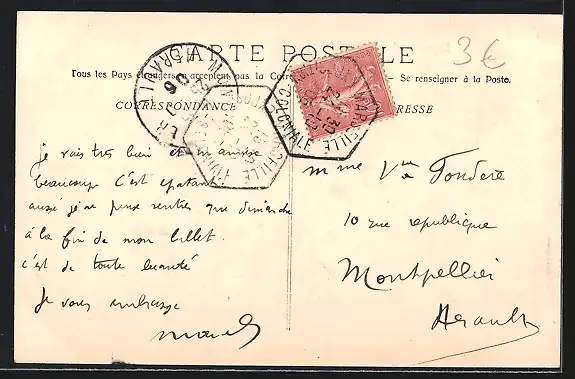 CARTE POSTALE
3€
Tous les Pays étrangers n'acceptent pas la Corres Se renseigner à la Poste.
CORRESPONDANCE
RESSE
MARSEILLE
COLONIALE
Je vais très bien et m'amuse
beaucoup c'est épatant
aussi je ne peux rentrer que dimanche
à la fin de mon billet
c'est de toute beauté
Je vous embrasse
Marcel
Mme Vve Fondere
10 rue republique
Montpellier
Herault